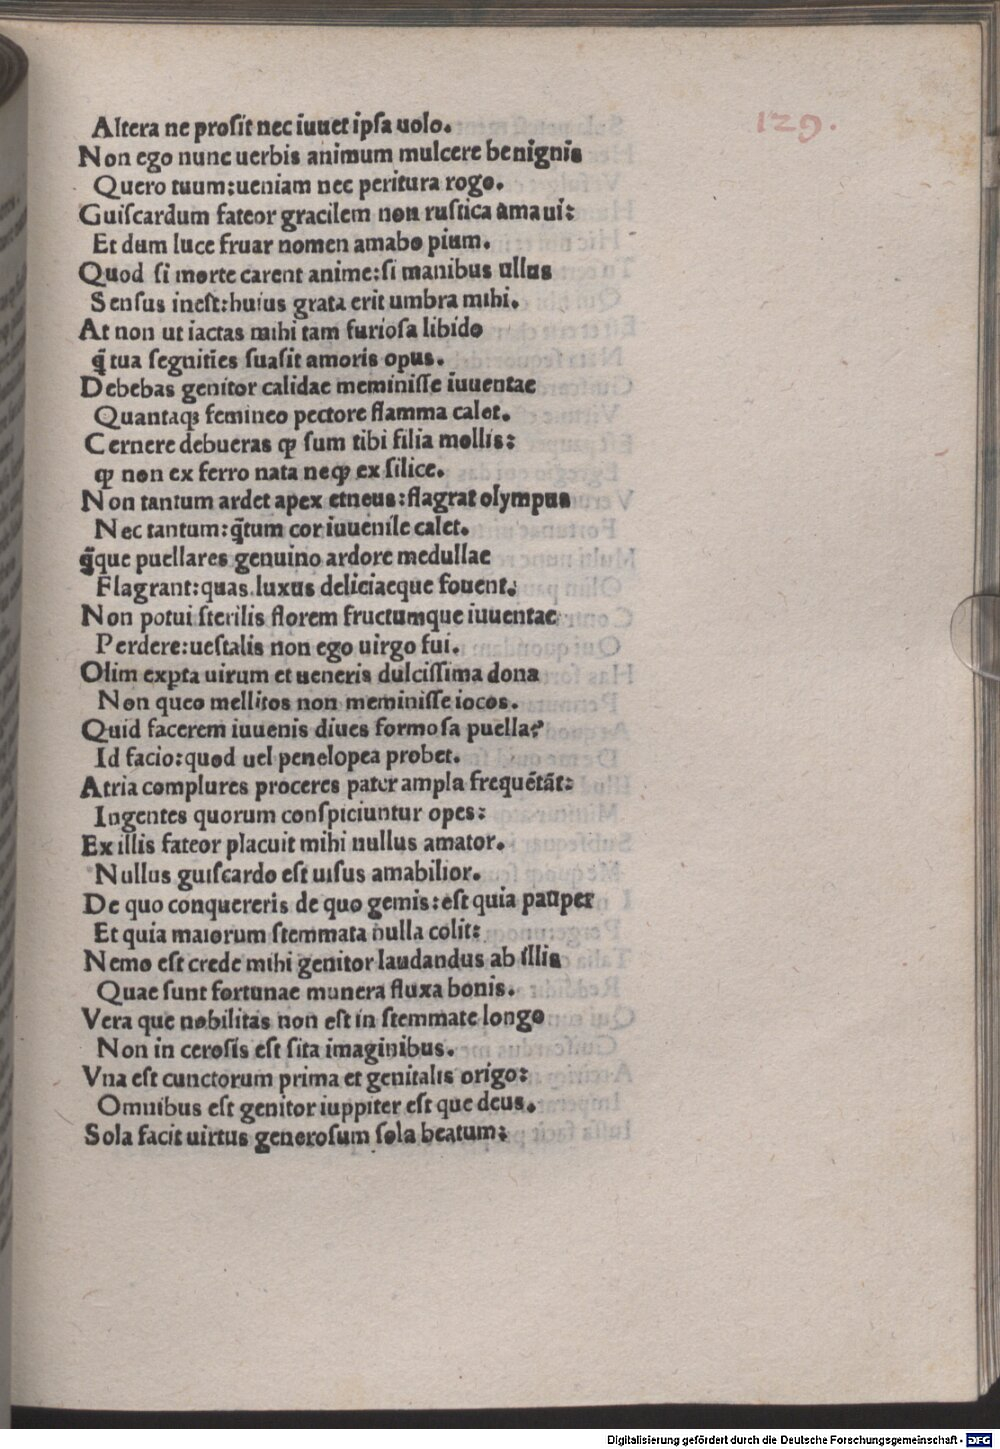 129.
Altera ne prosit nec iuuet ipsa uolo.
Non ego nunc uerbis animum mulcere benignis
Quero tuum:ueniam nec peritura rogo.
Guiscardum fateor gracilem non rustica amaui:
Et dum luce fruar nomen amabo pium.
Quod si morte carent anime:si manibus ullus
Sensus inest:huius grata erit umbra mihi.
At non ut iactas mihi tam furiosa libido
q̃ tua segnities suasit amoris opus.
Debebas genitor calidae meminisse iuuentae
Quantaqꝫ femineo pectore flamma calet.
Cernere debueras ꝙ sum tibi filia mollis:
ꝙ non ex ferro nata neqꝫ ex silice.
Non tantum ardet apex etneus:flagrat olympus
Nec tantum:q̃tum cor iuuenile calet.
q̃que puellares genuino ardore medullae
Flagrant:quas luxus deliciaeque fouent.
Non potui sterilis florem fructumque iuuentae
Perdere:uestalis non ego uirgo fui.
Olim expta uirum et ueneris dulcissima dona
Non queo mellitos non meminisse iocos.
Quid facerem iuuenis diues formosa puella?
Id facio:quod uel penelopea probet.
Atria complures proceres pater ampla frequẽtãt:
Ingentes quorum conspiciuntur opes:
Ex illis fateor placuit mihi nullus amator.
Nullus guiscardo est uisus amabilior.
De quo conquereris de quo gemis:est quia pauper
Et quia maiorum stemmata nulla colit:
Nemo est crede mihi genitor laudandus ab illis
Quae sunt fortunae munera fluxa bonis.
Vera que nobilitas non est in stemmate longo
Non in cerosis est sita imaginibus.
Vna est cunctorum prima et genitalis origo:
Omnibus est genitor iuppiter est que deus.
Sola facit uirtus generosum sola beatum:
Digitalisierung gefördert durch die Deutsche Forschungsgemeinschaft - DFG